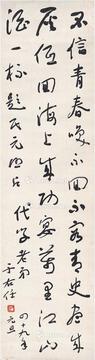 不信青春喚不回不容青史盡成
灰低回海上成功宴萬里江山
酒一杯題民元照片
代 老弟
于右任
四十九年
元旦